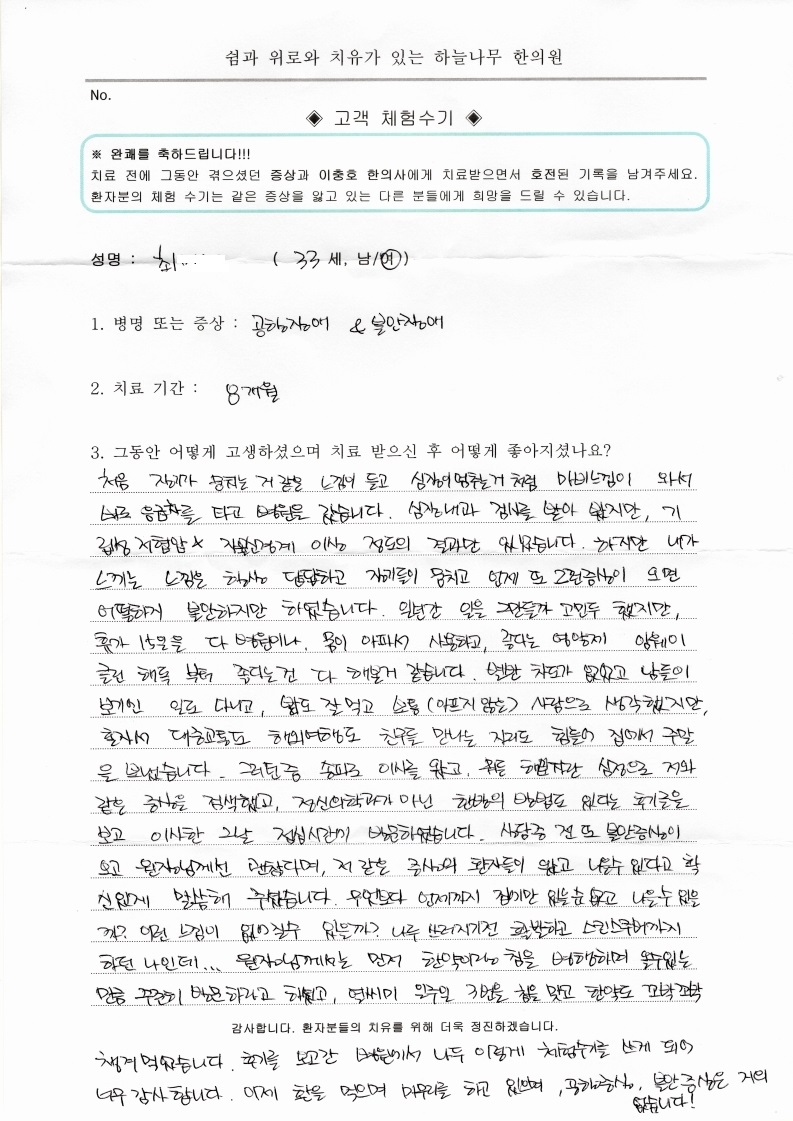 쉼과 위로와 치유가 있는 하늘나무 한의원
No.
◈ 고객 체험수기 ◈
※ 완쾌를 축하드립니다!!!
치료 전에 그동안 겪으셨던 증상과 이충호 한의사에게 치료받으면서 호전된 기록을 남겨주세요.
환자분의 체험 수기는 같은 증상을 앓고 있는 다른 분들에게 희망을 드릴 수 있습니다.
성명 : 최 ( 33 세, 남/여)
1. 병명 또는 증상 : 공황장애 & 불안장애
2. 치료 기간 : 8개월
3. 그동안 어떻게 고생하셨으며 치료 받으신 후 어떻게 좋아지셨나요?
처음 자기가 뭉치는 거 같은 느낌이 들고 심장이 멈추는거 처럼 마비느낌이 와서
바로 응급차를 타고 병원을 갔습니다. 심장내과 검사를 받아 봤지만, 기
립성 저혈압 + 자율신경계 이상 정도의 결과만 있었습니다. 하지만 내가
느끼는 느낌은 항상 답답하고 뭉치고 언제 또 그런증상이 오면
어떡하지 불안하기만 하였습니다. 일년간 일을 그만둘까 고민두 했지만,
휴가 15일을 다 병원이나, 몸이 아파서 사용하고, 좋다는 영양제 암웨이
클린 해독 부터 좋다는건 다 해본거 같습니다. 별반 차도가 없었고 남들이
보기엔 일도 다니고, 밥도 잘 먹고 보통 (아프지 않는) 사람으로 생각했지만,
혼자서 대중교통도 해외여행도 친구를 만나는 자리도 힘들어 집에서 주말
을 보냈습니다. 그러던중 송파로 이사를 왔고, 심정으로 저와
같은 증상을 검색했고, 정신의학과가 아닌 한방의 방법도 있다는 후기글을
보고 이사한 그날 점심시간에 방문하였습니다. 상담중 전 또 불안증상이
오고 원장님께선 괜찮다며, 저 같은 증상의 환자들이 왔고 나을수 있다고 확
신있게 말씀해 주셨습니다. 무엇보다 언제까지 집에만 있을순 없고 나을수 있을
까? 이런 느낌이 없어질수 있을까? 나두 쓰러지기전 활발하고 스킨스쿠버까지
하던 나인데... 원장님께서는 먼저 한약이랑 침을 병행하며 올수있는
만큼 꾸준히 방문하라고 하셨고, 열씨미 일주일 3번을 침을 맞고 한약도 꼬박꼬박
감사합니다. 환자분들의 치유를 위해 더욱 정진하겠습니다.
챙겨 먹었습니다. 후기를 보고간 병원에서 나두 이렇게 체험수기를 쓰게 되어
너무 감사합니다. 이제 환을 먹으며 마무리를 하고 있으며, 공황증상, 불안증상은 거의
없습니다!